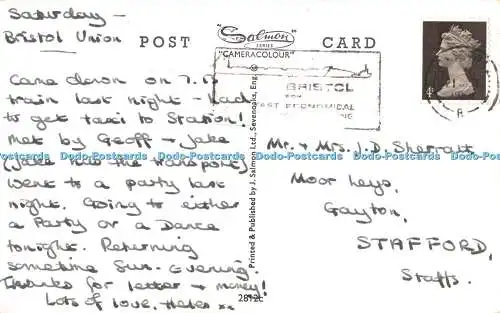 Saturday -
Bristol Union
Came down on 7.15
train last night - had
to get taxi to Station!
Met by Geoff + Jake
(Jake has the transport)
Went to a party last
night. Going to either
a Party or a Dance
tonight. Returning
sometime Sun. Evening.
Thanks for letter + money!
Lots of love, Helen xx
POST
Salmon
SERIES
"CAMERACOLOUR"
CARD
BRISTOL
FOR
ECONOMICAL
4d
Printed & Published by J. Salmon Ltd., Sevenoaks, Eng. ©
2812c
Mr. + Mrs. J.D. Sherratt
Moor Leys,
Gayton,
STAFFORD,
Staffs.
Dodo-Postcards Dodo-Postcards Dodo-Postcards Dodo-Postcards Dodo-Postcards